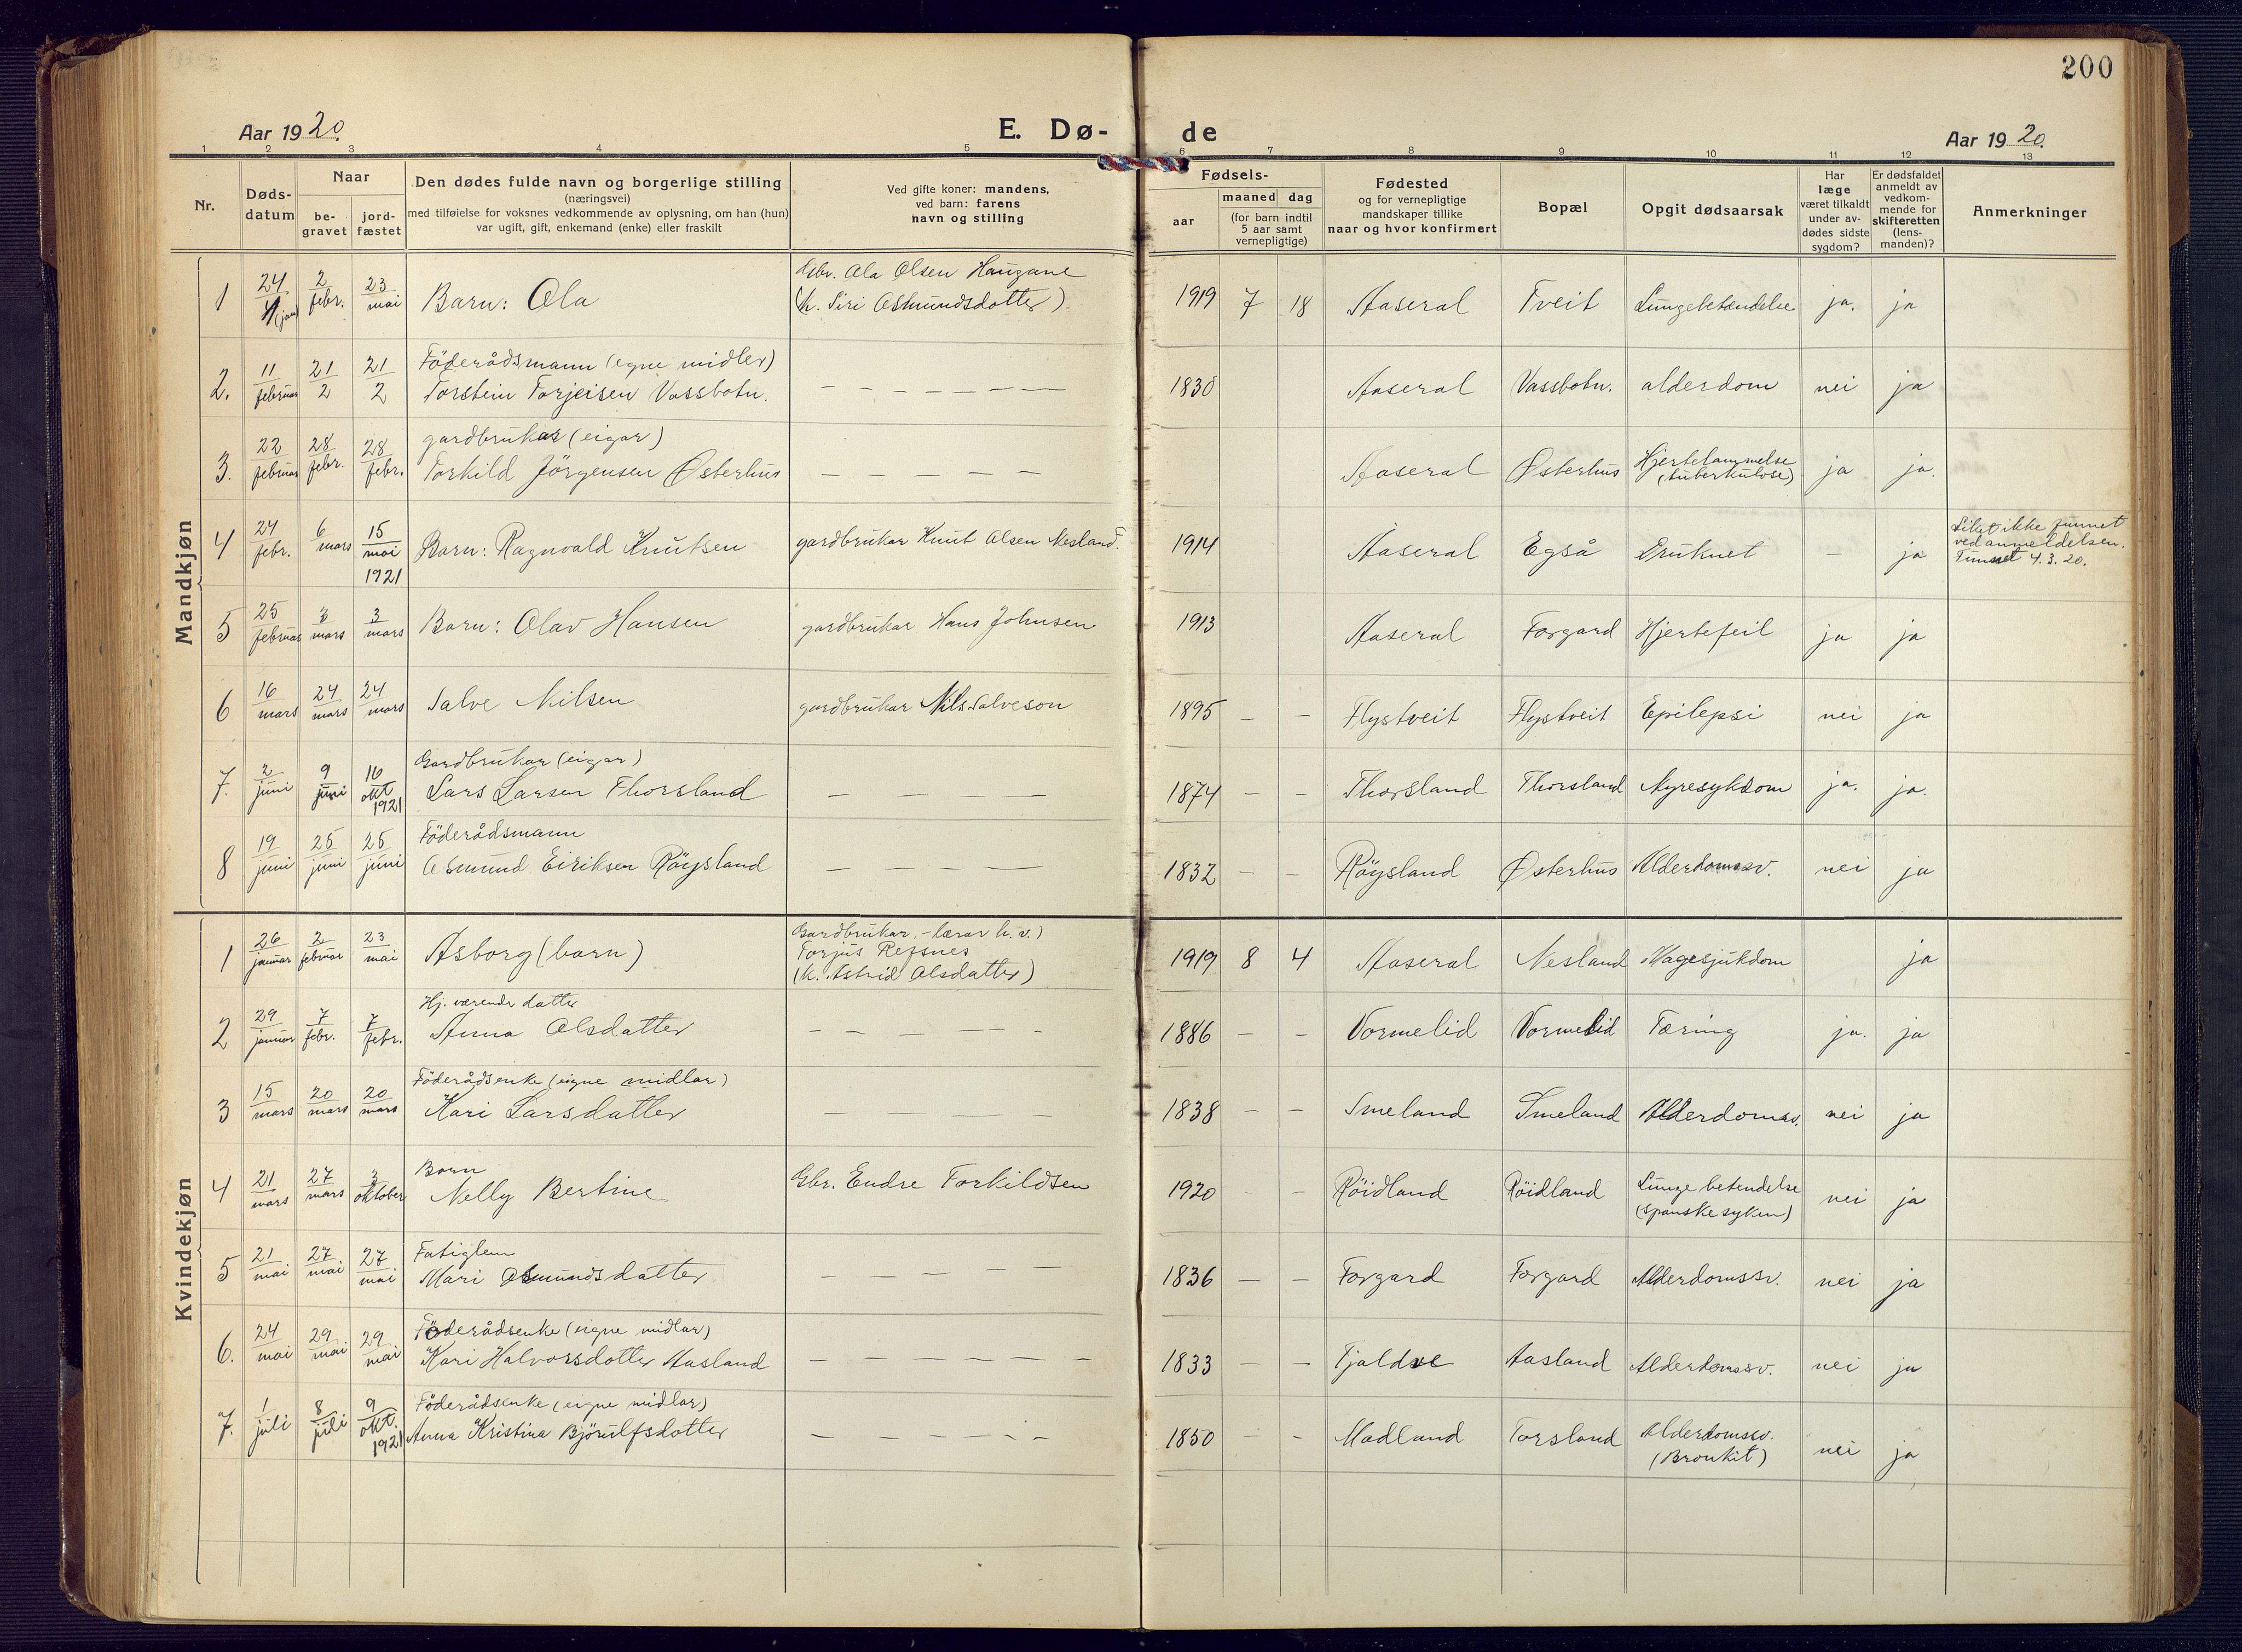 200
Aar 1920.
E. Dø-
de
Aar 1920.
1 2 3 4 5 6 7 8 9 10 11 12 13
Nr.
Døds-
datum
Naar
be-
gravet
jord-
fæstet
Den dødes fulde navn og borgerlige stilling
(næringsvei)
med tilføielse for voksnes vedkommende av oplysning, om han (hun)
var ugift, gift, enkemand (enke) eller fraskilt
Ved gifte koner: mandens,
ved barn: farens
navn og stilling
Fødsels-
aar
maaned
dag
(for barn indtil
5 aar samt
vernepligtige)
Fødested
og for vernepligtige
mandskaper tillike
naar og hvor konfirmert
Bopæl
Opgit dødsaarsak
Har
læge
været tilkaldt
under av-
dødes sidste
sygdom?
Er dødsfaldet
anmeldt av
vedkom-
mende for
skifteretten
(lens-
manden)?
Anmerkninger
Mandkjøn
1 24/1 (jan) 2 febr. 23 mai Barn: Ola Gbr. Ola Olsen Haugane
(h. Siri Asmundsdotter) 1919 7 18 Aaseral Tveit Lungebetændelse ja. ja
Föderådsmann (egne midler)
2. 11 februar 21/2 21/2 Torstein Torjeisen Vassbotn. — — — — — — 1830 Aaseral Vassbotn. alderdom nei ja
gardbrukar (eigar)
3. 22 februar 28 febr. 28 febr. Torkild Jörgensen Østerhus — — — — — Aaseral Østerhus Hjertelammelse
(tuberkulose) ja ja.
4 24 febr. 6 mars 15 mai 1921 Barn: Ragnvald Knutsen gardbrukar Knut Olsen Nesland. 1914 Aaseral Egså Druknet – ja Liket ikke funnet
ved anmeldelsen.
Funnet 4.3.20.
5 25 februar 3 mars 3 mars Barn: Olav Hansen gardbrukar Hans Johnsen 1913 Aaseral Forgard Hjertefeil ja ja
6 16 mars 24 mars 24 mars Salve Nilsen gardbrukar Nils Salveson 1895 — — Flystveit Flystveit Epilepsi nei ja
Gardbrukar (eigar)
7. 2 juni 9 juni 16 okt 1921 Lars Larsen Thorsland — — — — 1874 — — Thorsland Thorsland Nyresykdom ja. ja.
Föderådsmann
8 19 juni 25 juni 25 juni Asmund Eiriksen Röysland — — — — — 1832 — — Röysland Østerhus Alderdomssv. nei ja
Kvindekjøn
1 26 januar 2 februar 23 mai Åsborg (barn) Gardbrukar, – lærar h.v.)
Torjus Refsnes
(h. Astrid Olsdatter) 1919 8 4 Aaseral Nesland Magesjukdom ja
Hj. værende datter
2 29 januar 7 febr. 7 febr. Anna Olsdatter — — — — — 1886 — — Vormelid Vormelid Tæring ja. ja
Föderådsenke (eigne midlar)
3 15 mars 20 mars 20 mars Kari Larsdatter — — — — 1838 — — Smeland Smeland Alderdomsv. nei ja
Barn
4 21 mars 27 mars 3 oktober Nelly Bertine Gbr. Endre Torkildsen 1920 — — Röidland Röidland Lunge betendelse
(spanske syken) nei ja
Fatiglem
5 21 mai 27 mai 27 mai Mari Asmundsdatter — — — — — 1836 — — Forgard Forgard Alderdomssv. nei ja
Föderådsenke (eigne midlar)
6. 24 mai 29 mai 29 mai Kari Halvorsdotter Aasland — — — — — — 1833 — — Tjaldve Aasland Alderdomssv. nei ja
Föderådsenke (eigne midlar)
7. 1 juli 8 juli 9 okt. 1921 Anna Kristina Björulfsdotter — — — — — 1850 — — Madland Torsland Alderdomssv.
(Bronkit) nei ja